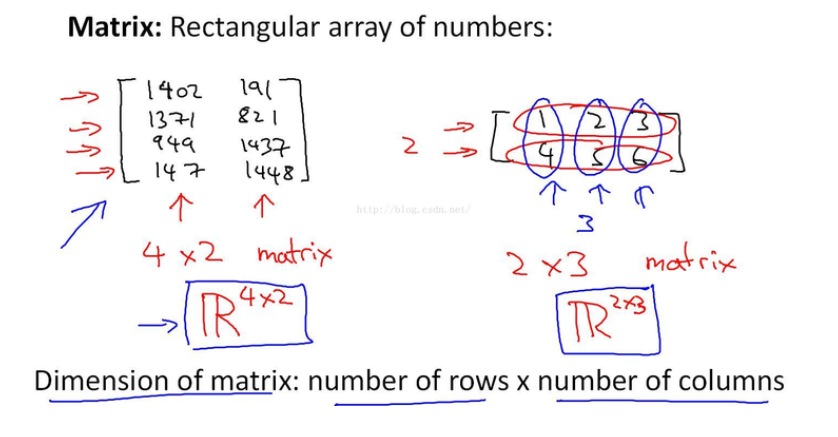 Matrix: Rectangular array of numbers:
1402 191
1371 821
949 1437
147 1448
4 x 2 matrix
ℝ^4x2
2
1 2 3
4 5 6
3
2 x 3 matrix
ℝ^2x3
http://blog.csdn.net/
Dimension of matrix: number of rows x number of columns